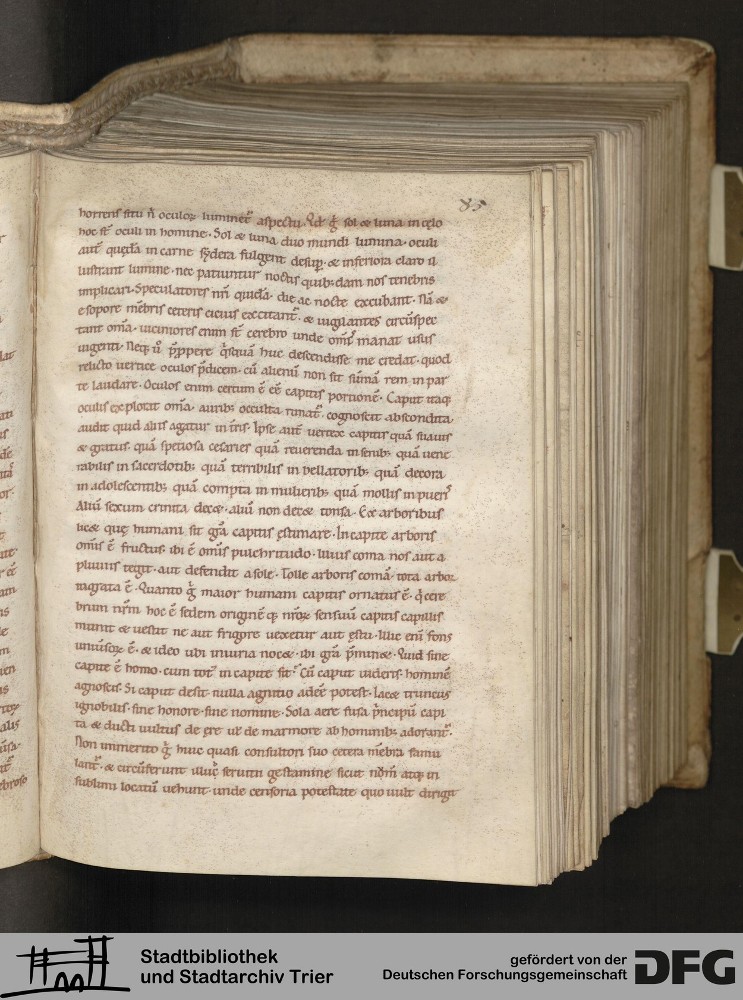 85
horrens situ n̄ oculoꝝ luminet᷑ aspectu. Qd̄ g̊ sol & luna in cęlo
hoc st̄ oculi in homine. Sol & luna duo mundi lumina. oculi
aut̄ quędā in carne sydera fulgent desuꝑ. & inferiora claro il
lustrant lumine. nec patiuntur noctis quibꝫdam nos tenebris
implicari. Speculatores nr̄i quidā. die ac nocte excubant. Nā &
e sopore mēbris ceteris citius excitant᷑. & uigilantes circūspec
tant om̄a. uiciniores enim st̄ cerebro unde om̄is manat usus
uigenti. Neqꝫ ů p̄ppere q̇squā huc descendisse me credat. quod
relicto uertice oculos p̄dicem. cū alienū non sit sūmā rem in par
te laudare. Oculos enim certum ē eē capitis portionē. Caput itaqꝫ
oculis explorat om̄a. auribꝫ occulta rimat᷑. cognoscit abscondita.
audit quid aliis agatur in t̄ris. Ipse aut̄ uertex capitis quā suauis
& gratus. quā spetiosa cesaries quā reuerenda in senibꝫ quā uene
rabilis in sacerdotibꝫ quā terribilis in bellatoribꝫ quā decora
in adolescentibꝫ quā compta in mulieribꝫ quā mollis in pueris
Aliū sexum crinita decet. aliū non decet tonsa. Ex arboribus
licet quę humani sit gr̄a capitis ęstimare. In capite arboris
om̄is ē fructus. ibi ē om̄is pulchritudo. illius coma nos aut a
pluuiis tegit. aut defendit a sole. Tolle arboris comā. tota arbor
ingrata ē. Quanto g̊ maior humani capitis ornatus ē. q̇ cere
brum nr̄m hoc ē sedem originē qꝫ nr̄oꝝ sensuū capitis capillis
munit & uestit ne aut frigore uexetur aut ęstu. Illic eni fons
uniūsoꝝ ē. & ideo ubi iniuria nocet. ibi gr̄a p̄minet. Quid sine
capite ē homo. cum tot᷑ in capite sit᷑ Cū caput uideris. hominē
agnoscis. Si caput desit nulla agnitio adeē potest. Iacet truncus
ignobilis. sine honore. sine nomine. Sola aere fusa p̄ncipū capi
ta & ducti uultus de ęre ul̄ de marmore ab hominibꝫ adorant᷑.
Non immerito g̊ huic quasi consultori suo cetera mēbra famu
lant᷑. & circūferunt illuc seruili gestamine sicut nōm atqꝫ in
sublimi locatū uehunt. unde censoria potestate quo uult dirigit
Stadtbibliothek
und Stadtarchiv Trier
gefördert von der
Deutschen Forschungsgemeinschaft
DFG